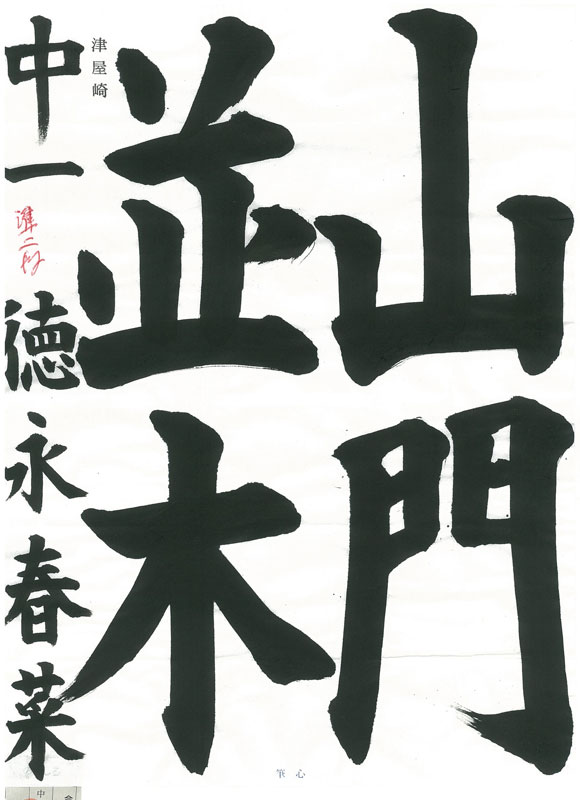 山門
並木
津屋崎
中一
準二段
徳永春菜
心筆
中